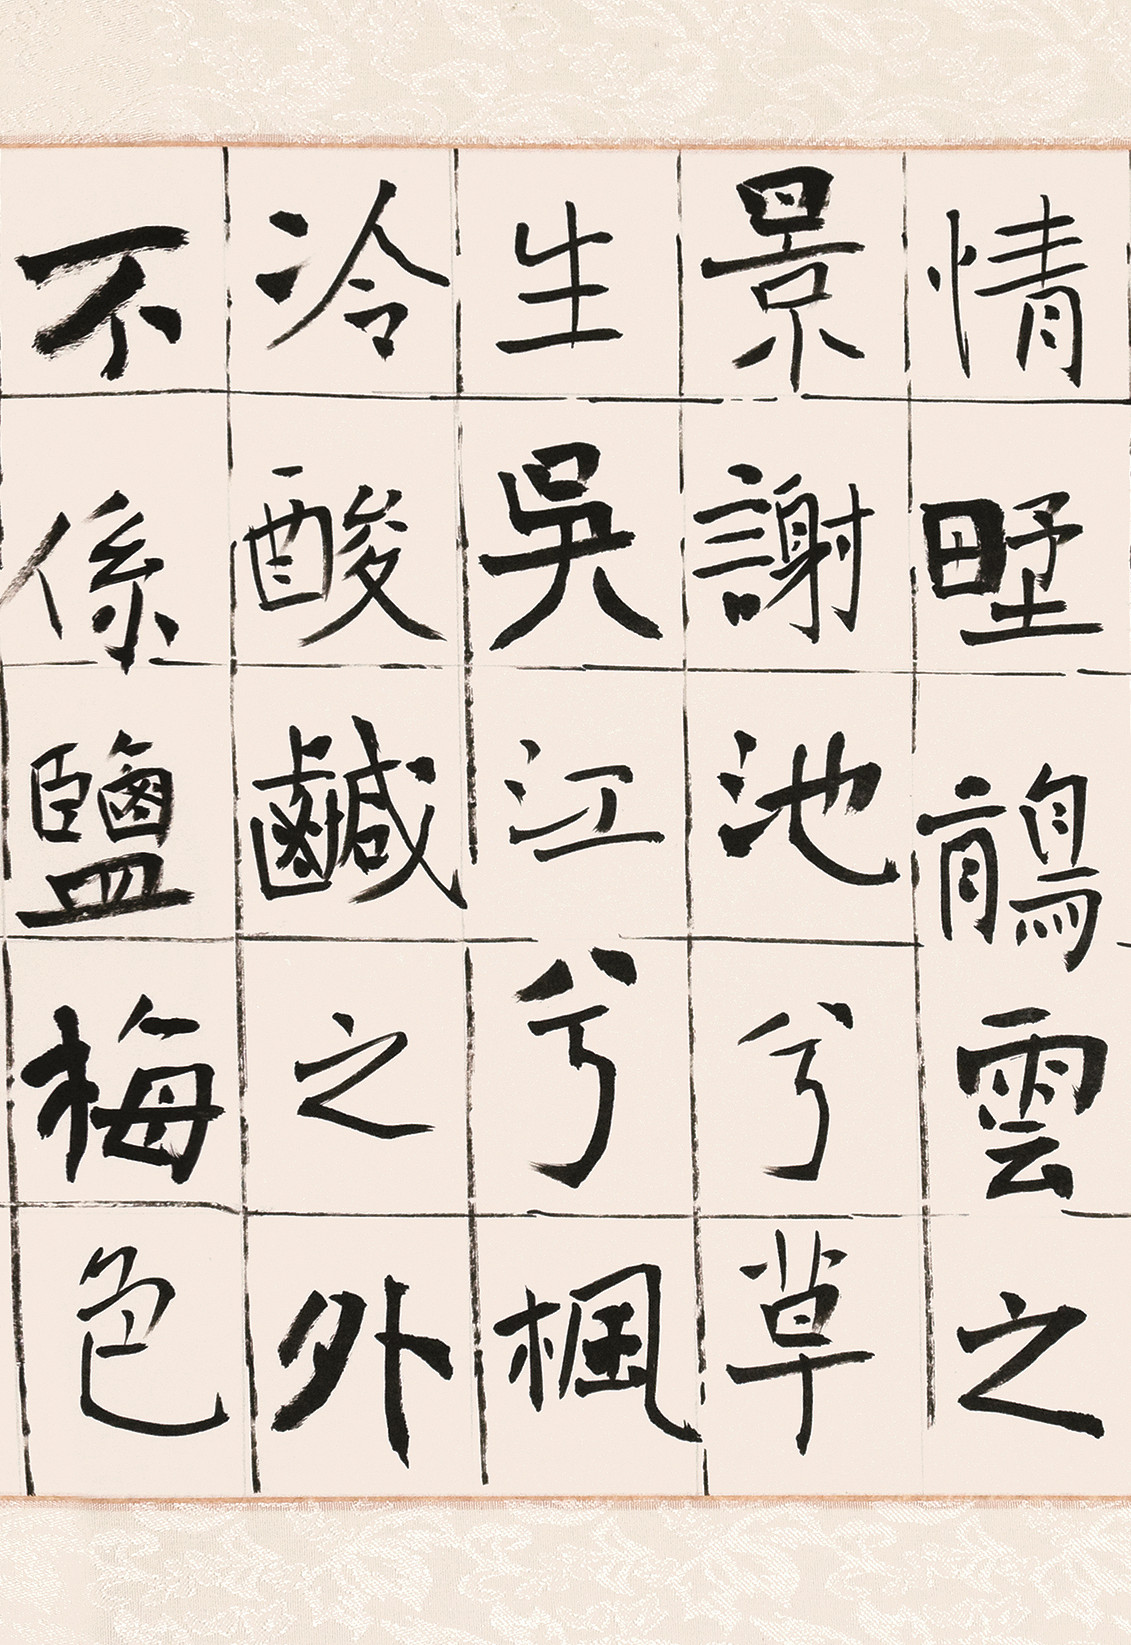 情野鶄雲之
景謝池兮草
生吳江兮楓
冷酸鹹之外
不係鹽梅色